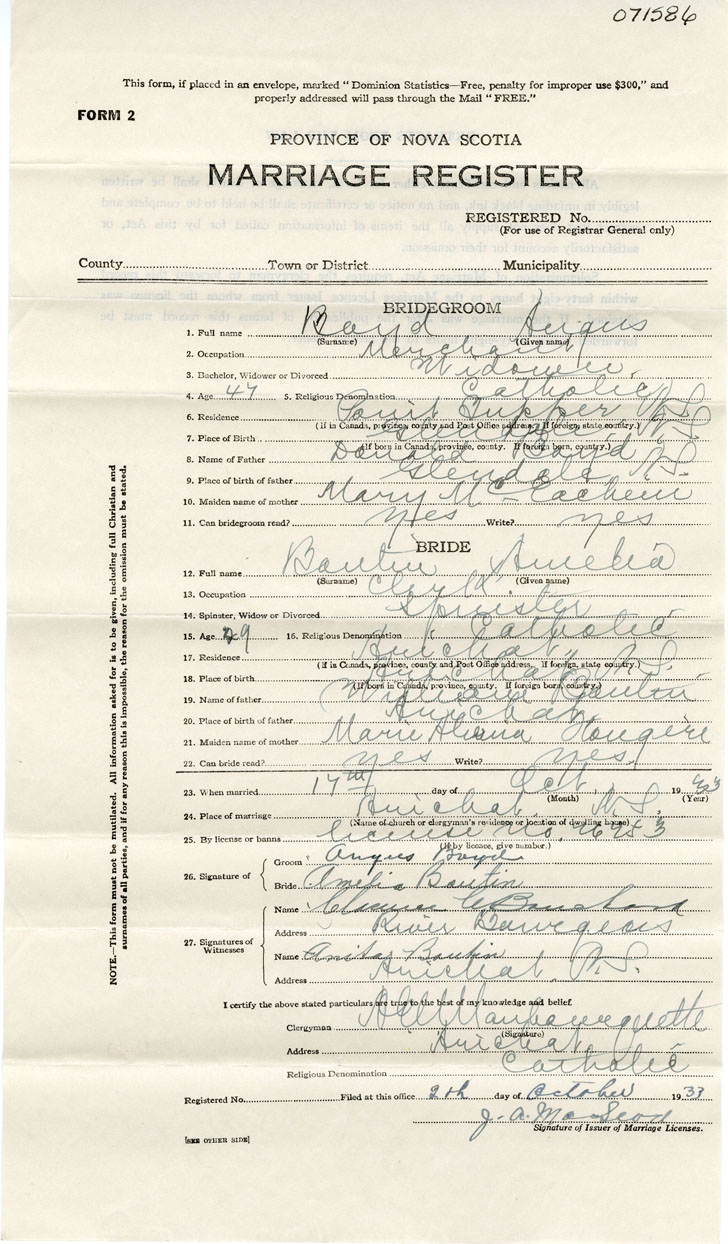 071586
This form, if placed in an envelope, marked "Dominion Statistics—Free, penalty for improper use $300," and
properly addressed will pass through the Mail "FREE."
FORM 2
PROVINCE OF NOVA SCOTIA
MARRIAGE REGISTER
REGISTERED No.
(For use of Registrar General only)
County Town or District Municipality
BRIDEGROOM
1. Full name Boyd Angus
(Surname) (Given name)
2. Occupation Merchant
3. Bachelor, Widower or Divorced Widower.
4. Age 47 5. Religious Denomination Catholic
6. Residence Point Tupper N.S.
(if in Canada, province, county and Post Office address. If foreign, state country.)
7. Place of Birth Glendale N.S.
(If born in Canada, province, county. If foreign born, country.)
8. Name of Father Donald Boyd
9. Place of birth of father Glendale N.S.
10. Maiden name of mother Mary McEachern
11. Can bridegroom read? yes Write? yes
BRIDE
12. Full name Boutin Amelia
(Surname) (Given name)
13. Occupation Clerk
14. Spinster, Widow or Divorced Spinster
15. Age 29 16. Religious Denomination Catholic
17. Residence Arichat, N.S.
(if in Canada, province, county and Post Office address. If foreign, state country.)
18. Place of birth Arichat N.S.
(If born in Canada, province, county. If foreign born, country.)
19. Name of father William Boutin
20. Place of birth of father Arichat
21. Maiden name of mother Marie
22. Can bride read? yes Write? yes.
23. When married 17th day of Oct. 1933
(Month) (Year)
24. Place of marriage Arichat, N.S.
(Name of church or clergyman's residence or location of dwelling house)
25. By license or banns license No.
(If by licence, give number.)
26. Signature of
Groom Angus Boyd
Bride Amelia Boutin
27. Signatures of Witnesses
Name
Address River Bourgeois
Name Anita Boutin
Address Arichat, N.S.
I certify the above stated particulars are true to the best of my knowledge and belief.
Clergyman
(Signature)
Address Arichat
Religious Denomination Catholic
Registered No. Filed at this office day of October 1933
J. A. McLeod
Signature of Issuer of Marriage Licenses.
[SEE OTHER SIDE]
NOTE.—This form must not be mutilated. All information asked for is to be given, including full Christian and
surnames of all parties, and if for any reason this is impossible, the reason for the omission must be stated.